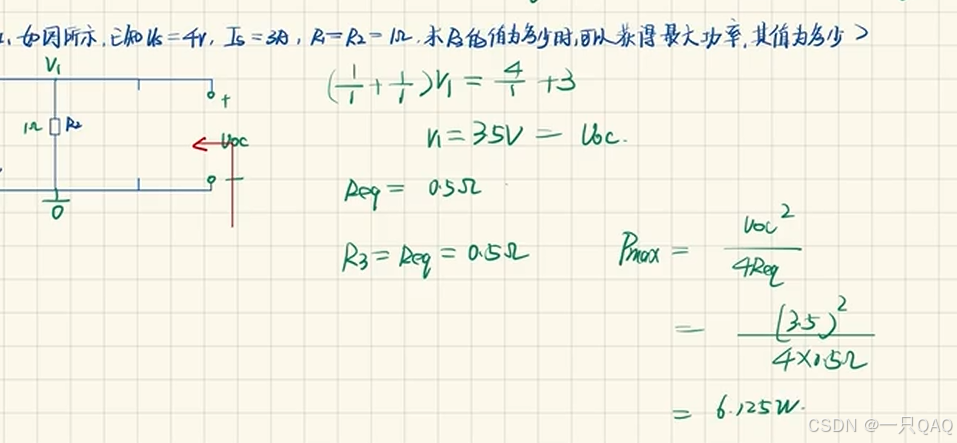 如图所示，已知Us=4V，Is=3A，R1=R2=1Ω．求R3的值为多少时，可以获得最大功率，其值为多少？
V1
(1/1+1/1)V1=4/1+3
+
1Ω R2
Uoc
V1=3.5V=Uoc.
−
Req=0.5Ω
0
R3=Req=0.5Ω
Pmax=Uoc²/4Req
=(3.5)²/4×0.5Ω
=6.125W.
CSDN @一只QAQ